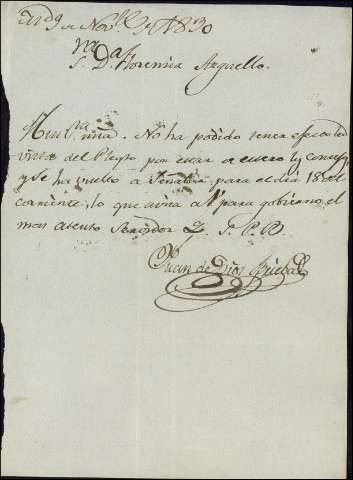 9 Nov.e 1830
S.ra D.a Florencia Arguello.
Muy S.ra mia: No ha podido tener efecto la
vista del Pleyto por estar
y se ha vuelto a señalar para el dia 18 del
corriente, lo que avisa a V. para gobierno, el
mas atento Servidor Q. S. P. B.
Juan de Dios